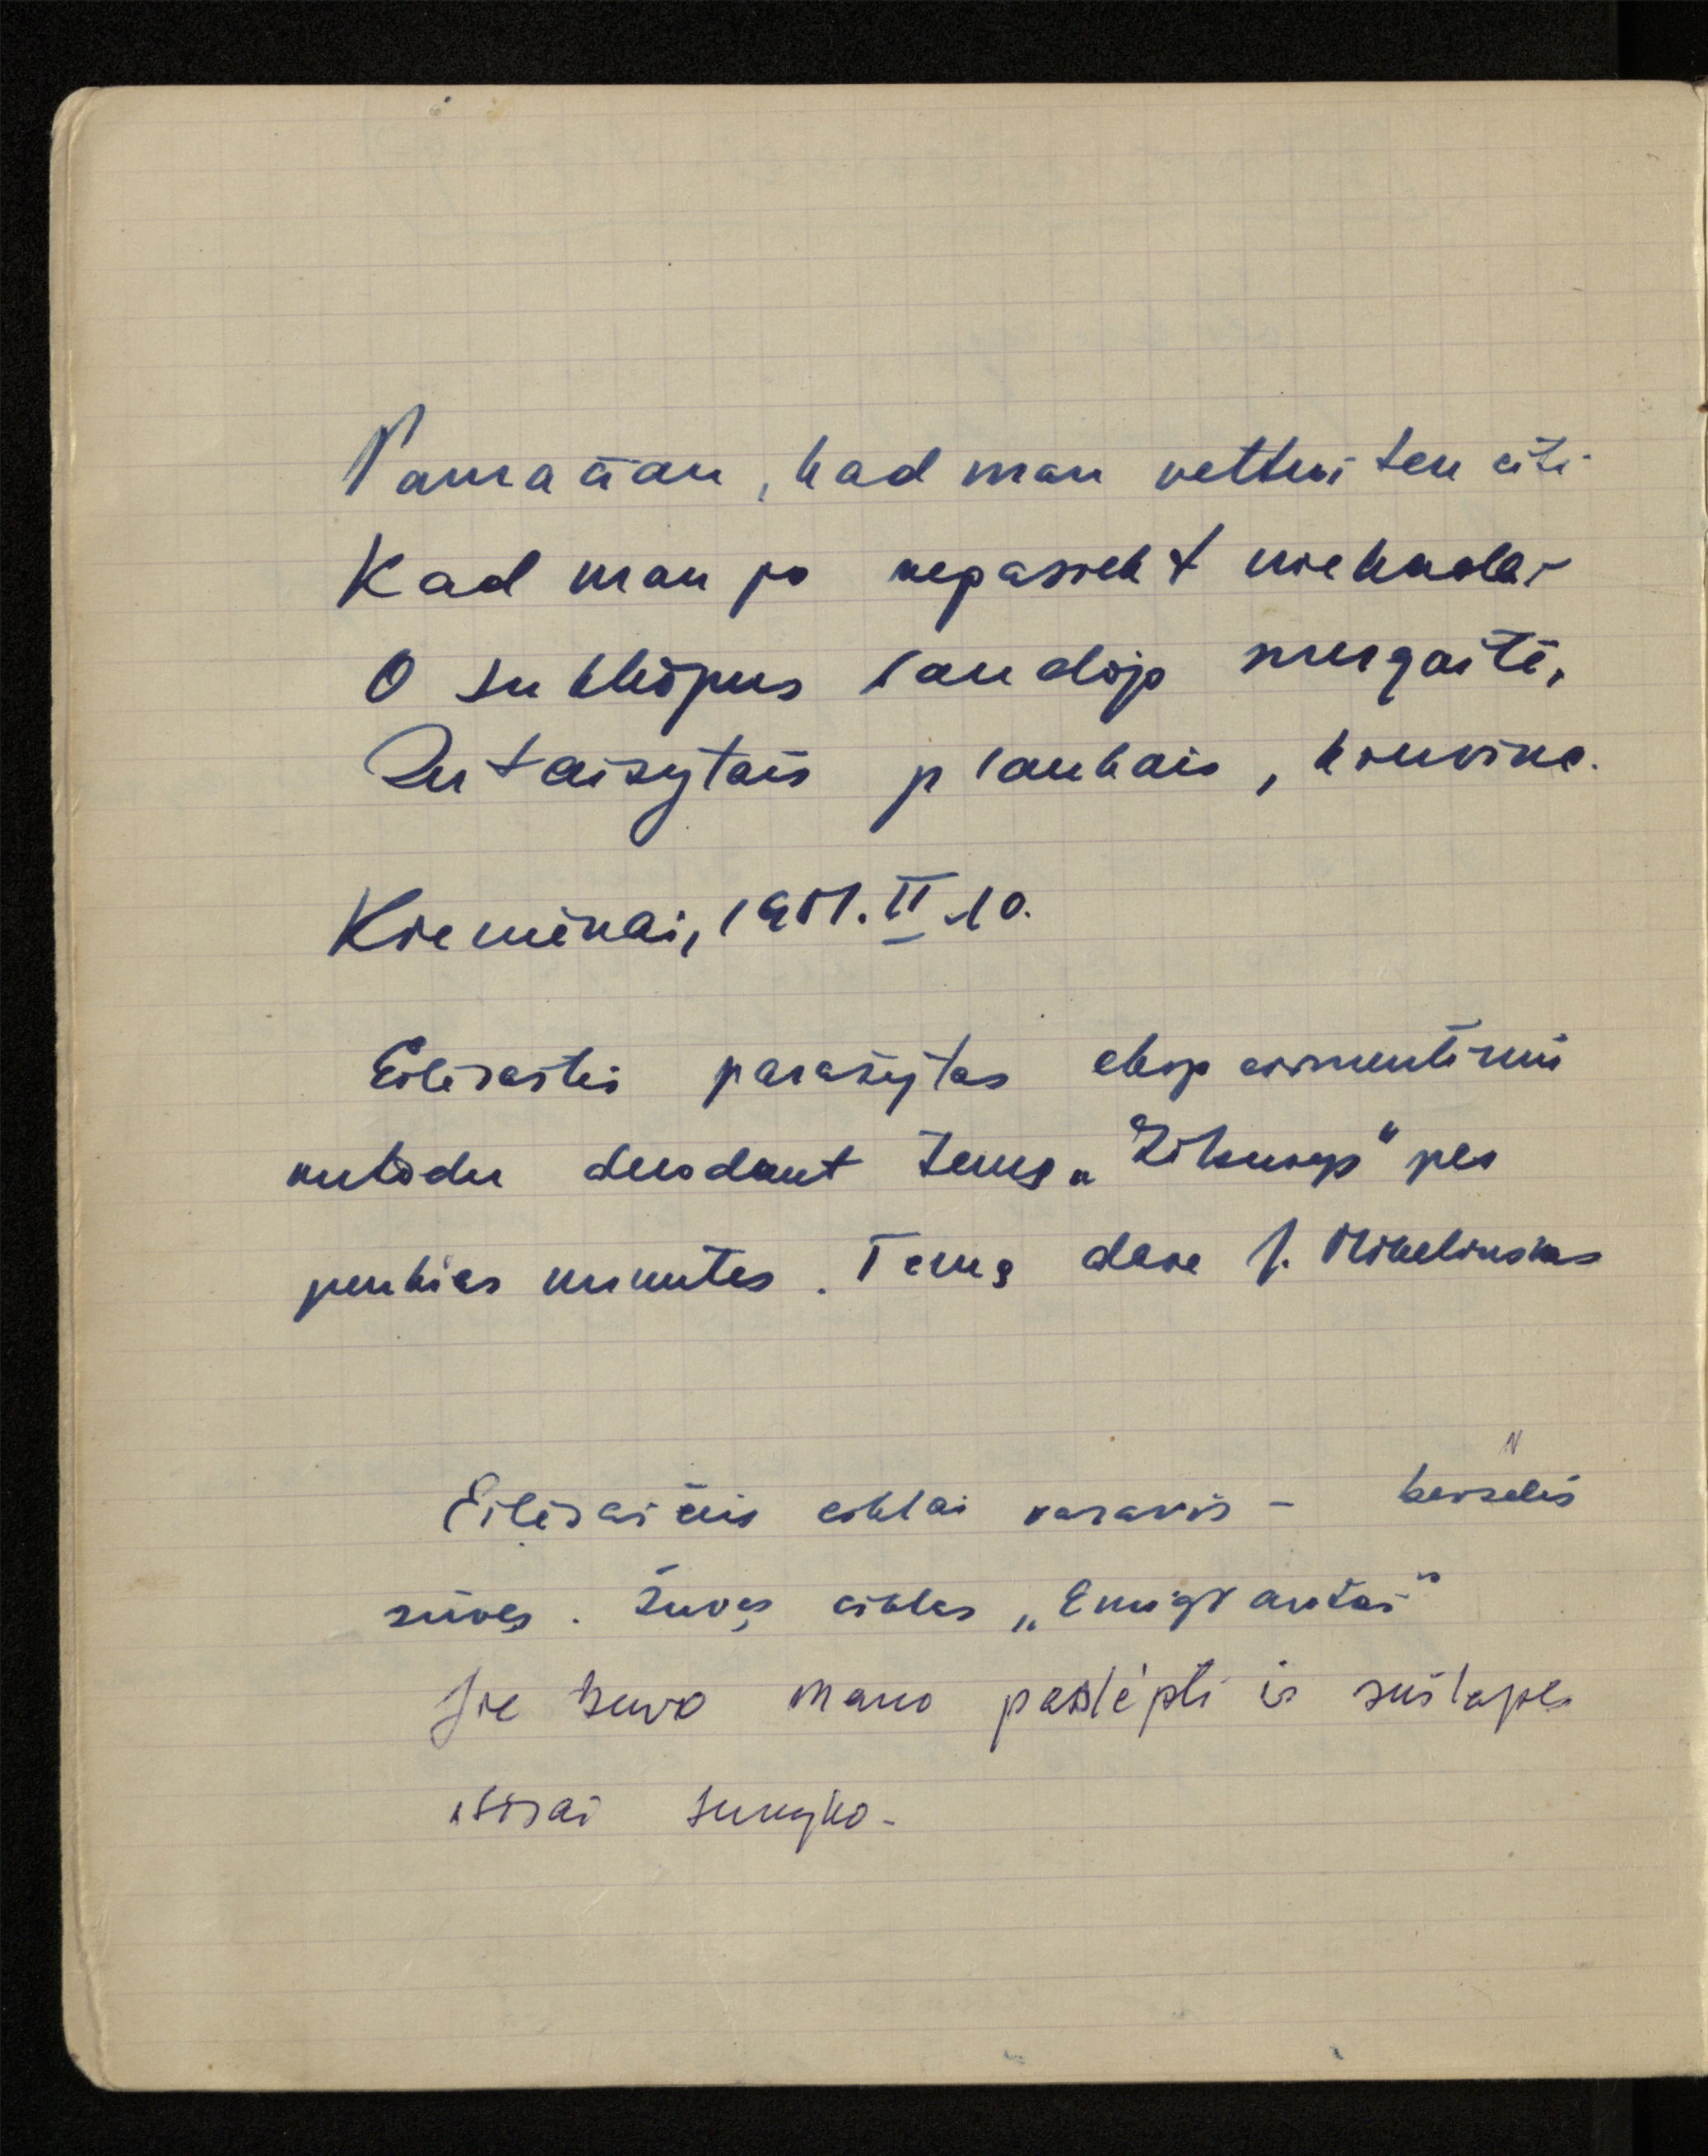 Pamačiau, kad man veltui ten eiti
Kad man jo nepasiekt niekada –
O suklupus raudojo mergaitė,
Sutaisytais plaukais, kruvina.
Kremėnai, 1951. II. 10.
Eilėrastis parašytas eksperimentiniu
metodu duodant temą „Žikurys“ per
penkias minutes. Temą davė J. Mikelinskas
Eilėraščių ciklai vasaris – birželis
žuvęs. Žuvęs ciklas „Emigrantai“
Jie buvo mano paslėpti ir sušlapę
ištisai sunyko.